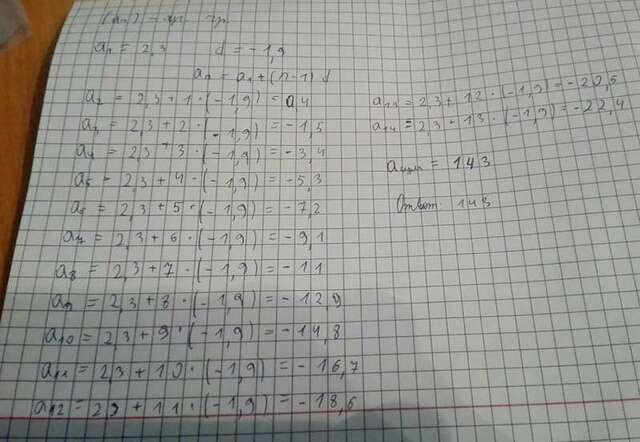 (aₙ) -
a₁ = 2,3 d = -1,9
aₙ = a₁ + (n-1) d
a₂ = 2,3 + 1 · (-1,9) = 0,4
a₃ = 2,3 + 2 · (-1,9) = -1,5
a₄ = 2,3 + 3 · (-1,9) = -3,4
a₅ = 2,3 + 4 · (-1,9) = -5,3
a₆ = 2,3 + 5 · (-1,9) = -7,2
a₇ = 2,3 + 6 · (-1,9) = -9,1
a₈ = 2,3 + 7 · (-1,9) = -11
a₉ = 2,3 + 8 · (-1,9) = -12,9
a₁₀ = 2,3 + 9 · (-1,9) = -14,8
a₁₁ = 2,3 + 10 · (-1,9) = -16,7
a₁₂ = 2,3 + 11 · (-1,9) = -18,6
a₁₃ = 2,3 + 12 · (-1,9) = -20,5
a₁₄ = 2,3 + 13 · (-1,9) = -22,4
= 143
Ответ 143